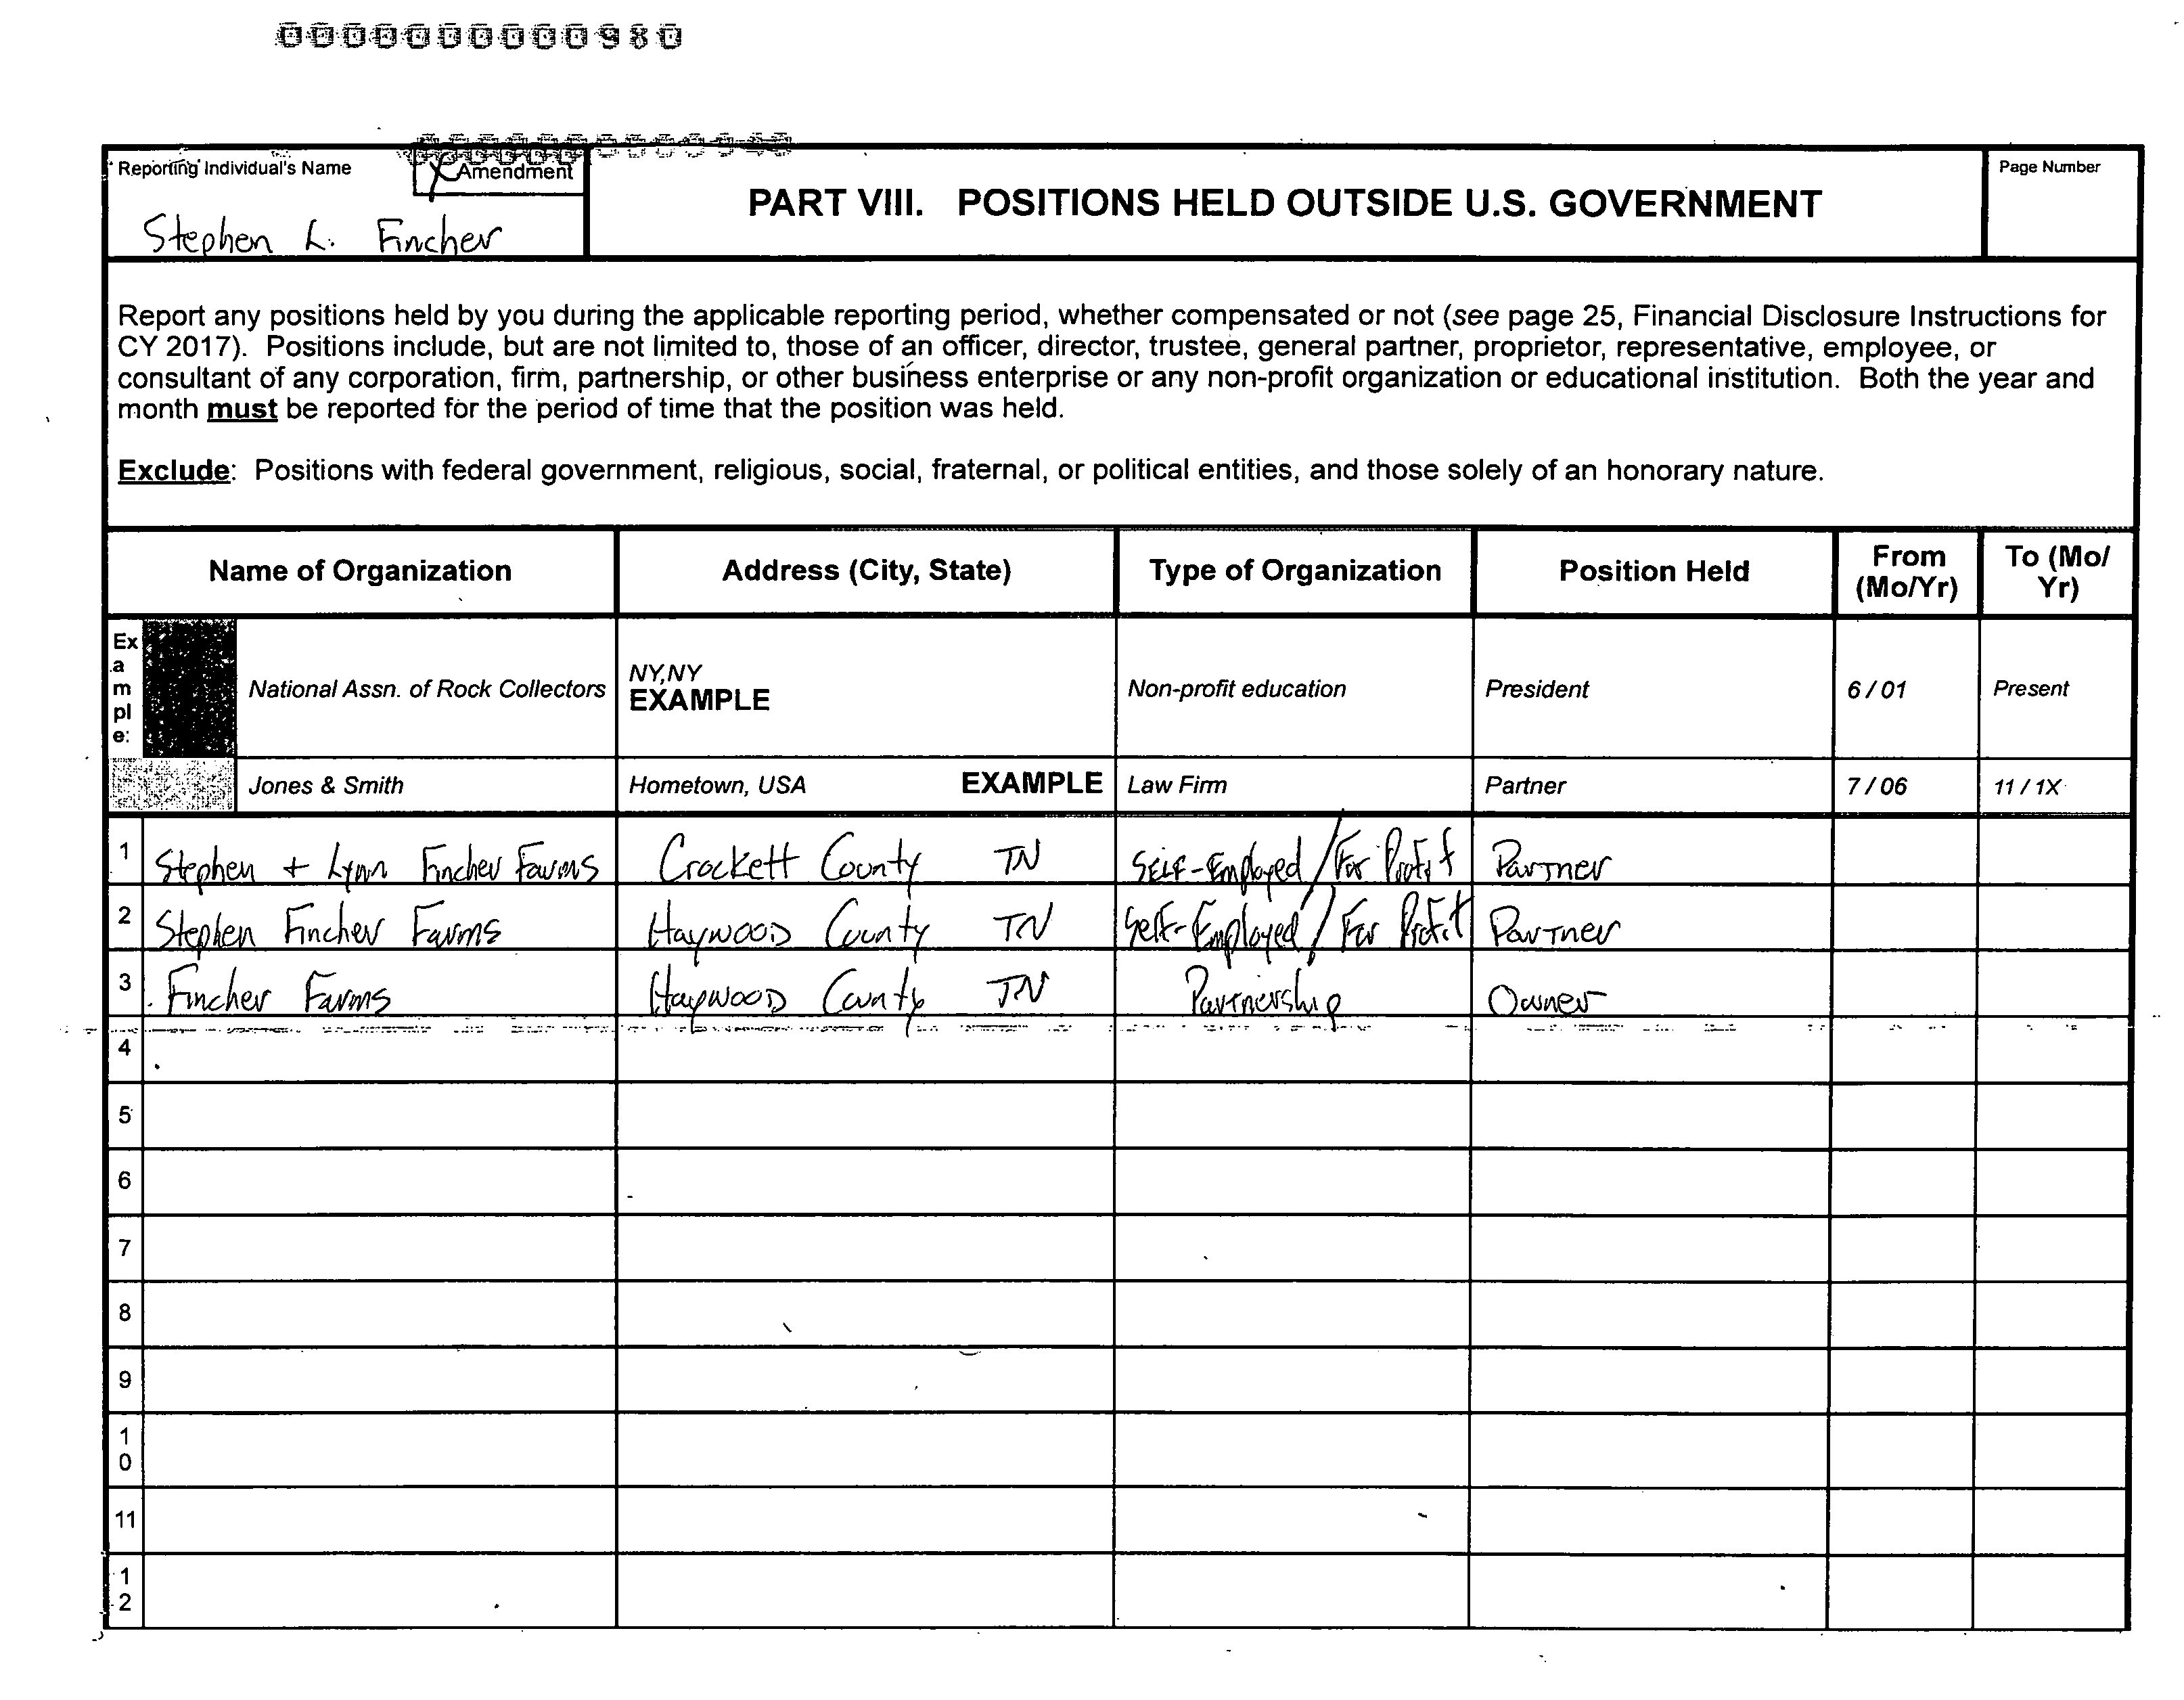 0000000000980
Reporting Individual's Name
X Amendment
Stephen L. Fincher
PART VIII. POSITIONS HELD OUTSIDE U.S. GOVERNMENT
Page Number
Report any positions held by you during the applicable reporting period, whether compensated or not (see page 25, Financial Disclosure Instructions for
CY 2017). Positions include, but are not limited to, those of an officer, director, trustee, general partner, proprietor, representative, employee, or
consultant of any corporation, firm, partnership, or other business enterprise or any non-profit organization or educational institution. Both the year and
month must be reported for the period of time that the position was held.
Exclude: Positions with federal government, religious, social, fraternal, or political entities, and those solely of an honorary nature.
Name of Organization Address (City, State) Type of Organization Position Held From (Mo/Yr) To (Mo/Yr)
Example: National Assn. of Rock Collectors NY,NY EXAMPLE Non-profit education President 6 / 01 Present
Jones & Smith Hometown, USA EXAMPLE Law Firm Partner 7 / 06 11 / 1X
1 Stephen + Lynn Fincher Farms Crockett County TN Self-Employed / For Profit Partner
2 Stephen Fincher Farms Haywood County TN Self-Employed / For Profit Partner
3 Fincher Farms Haywood County TN Partnership Owner
4
5
6
7
8
9
10
11
12